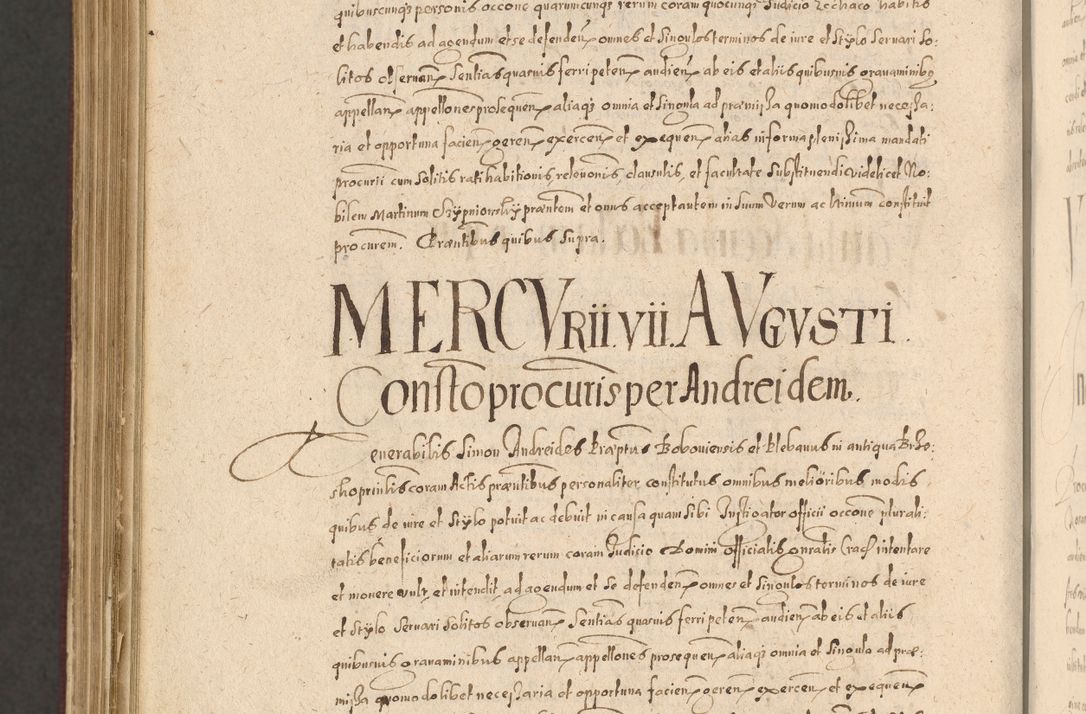 quibuscunqs personis occone quarumcunqs rerum coram quocunqs Judicio rechaco habitis
et habendis ad agendum et se defenden omnes et singulos terminos de iure et stylo servari so:
litos observan sentias quasuis ferri peten audien ab eis et aliis quibusuis gravaminibus
appellan appellones prosequen aliaqs omnia et singula ad præmissa quomodolibet necessa:
ria et opportuna facien geren exercen et exequen alias in forma plenissima mandati
procurii cum solitis ratihabitionis, relevonis, clausulis, et facultate substituendi videlicet No:
bilem Martinum præntem et onus acceptantem in suum verum ac ltimum constituit
procurem. Præntibus quibus supra.
MERCVrii. vii. AVGVSTI.
Constto procuris per Andreidem.
Venerabilis Simon Andreides Præptus Boboviensis et Plebanus in antiqua Brzo:
sko prinlis coram Actis præntibus personaliter constitutus omnibus melioribus modis
quibus de iure et stylo potuit ac debuit in causa quam sibi Instigator officii occone plurali:
tatis beneficiorum et aliarum rerum coram Judicio Domini officialis gnralis Crac intentare
et movere vult, et intendit, ad agendum et se defenden omnes et singulos terminos de iure
et stylo servari solitos observan sentias quasuis ferri peten audien ab eis et aliis
quibusuis gravaminibus appellan appellones prosequen aliaqs omnia et singula ad præ:
missa quomodolibet necessaria et opportuna facien geren exercen et exequen